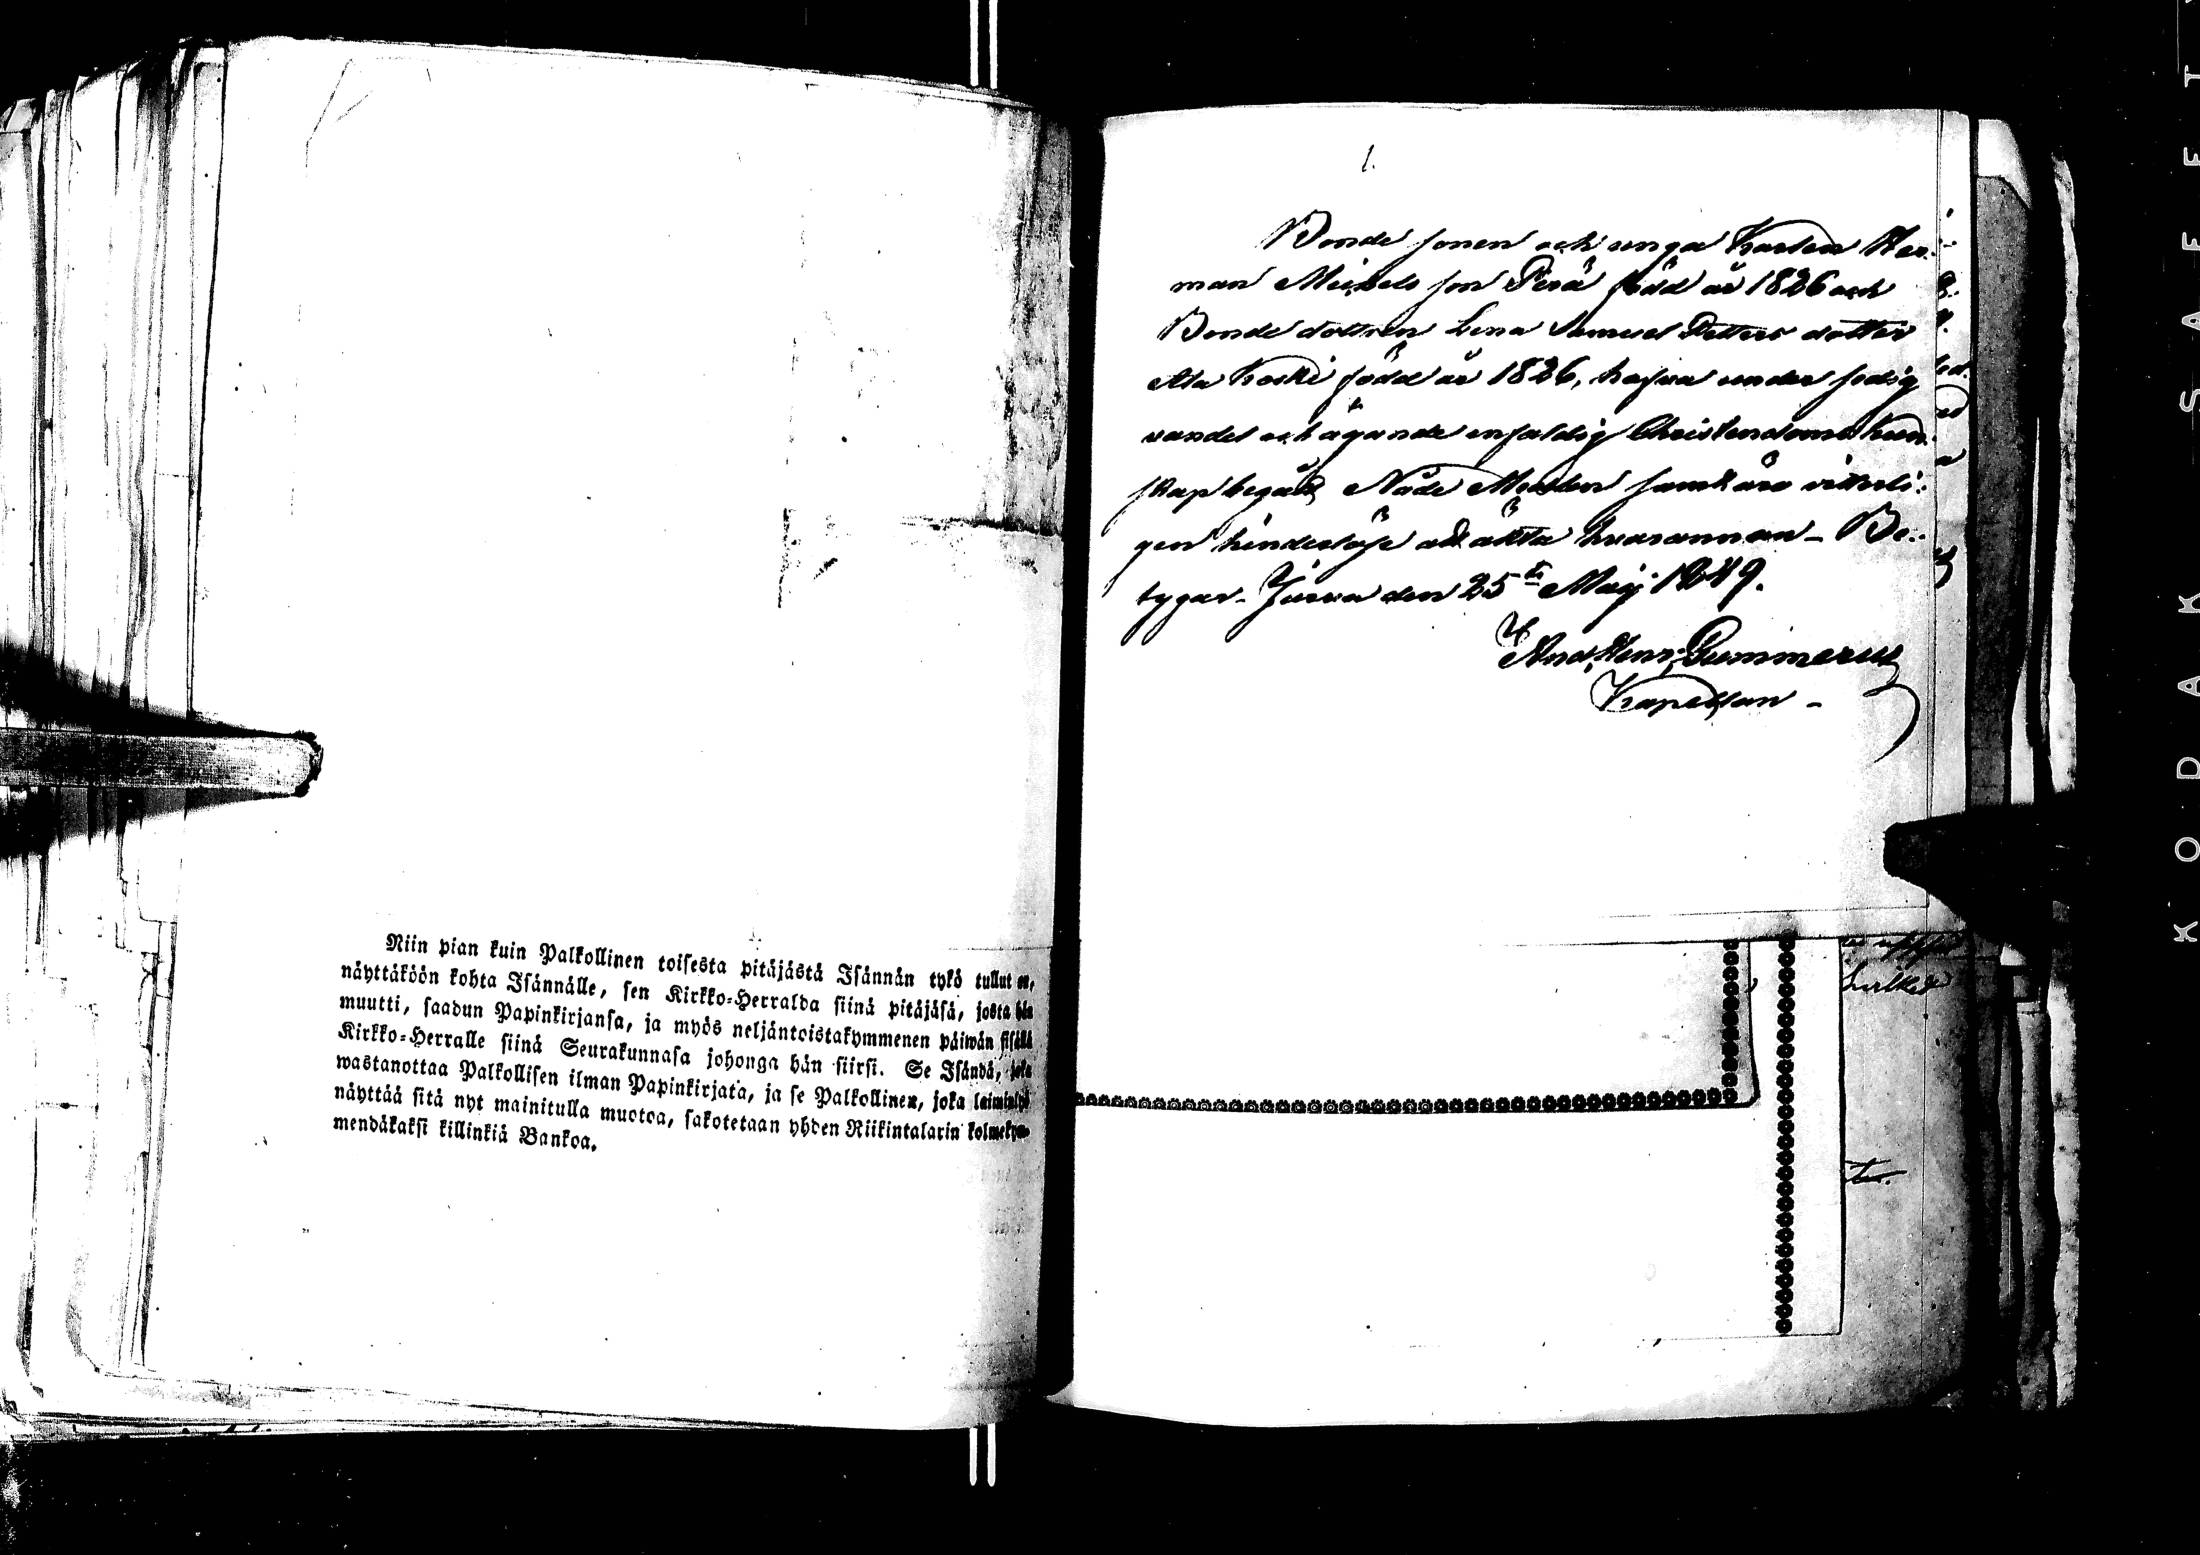 Niin pian kuin Palkollinen toisesta pitäjästä Isännän tykö tullut on,
näyttäköön kohta Isännälle, sen Kirkko-Herralda siinä pitäjäsä, josta hän
muutti, saadun Papinkirjansa, ja myös neljäntoistakymmenen päiwän sisällä
Kirkko-Herralle siinä Seurakunnasa johonga hän siirsi. Se Isändä, joka
wastanottaa Palkollisen ilman Papinkirjata, ja se Palkollinen, joka laiminlyö
näyttää sitä nyt mainitulla muotoa, sakotetaan yhden Riikintalarin kolmekym-
mendäkaksi killinkiä Bankoa.
1.
Bonde sonen och unga Karlen Her-
man Mickels son Perä född år 1826 och
Bonde dottren Lena Samuel Petters dotter
Ala Koski född år 1826, hafva under sedig
vandel och ägande enfaldig Christendoms kun-
skap begått Nåde Medlen samt äro vitterli-
gen hinderlöse att äkta hvarannan - Be-
tygar. Jurva den 25te Maij 1849.
And. Henr. Gummerus
Kapellan -
hvilket
KODAK SAFETY